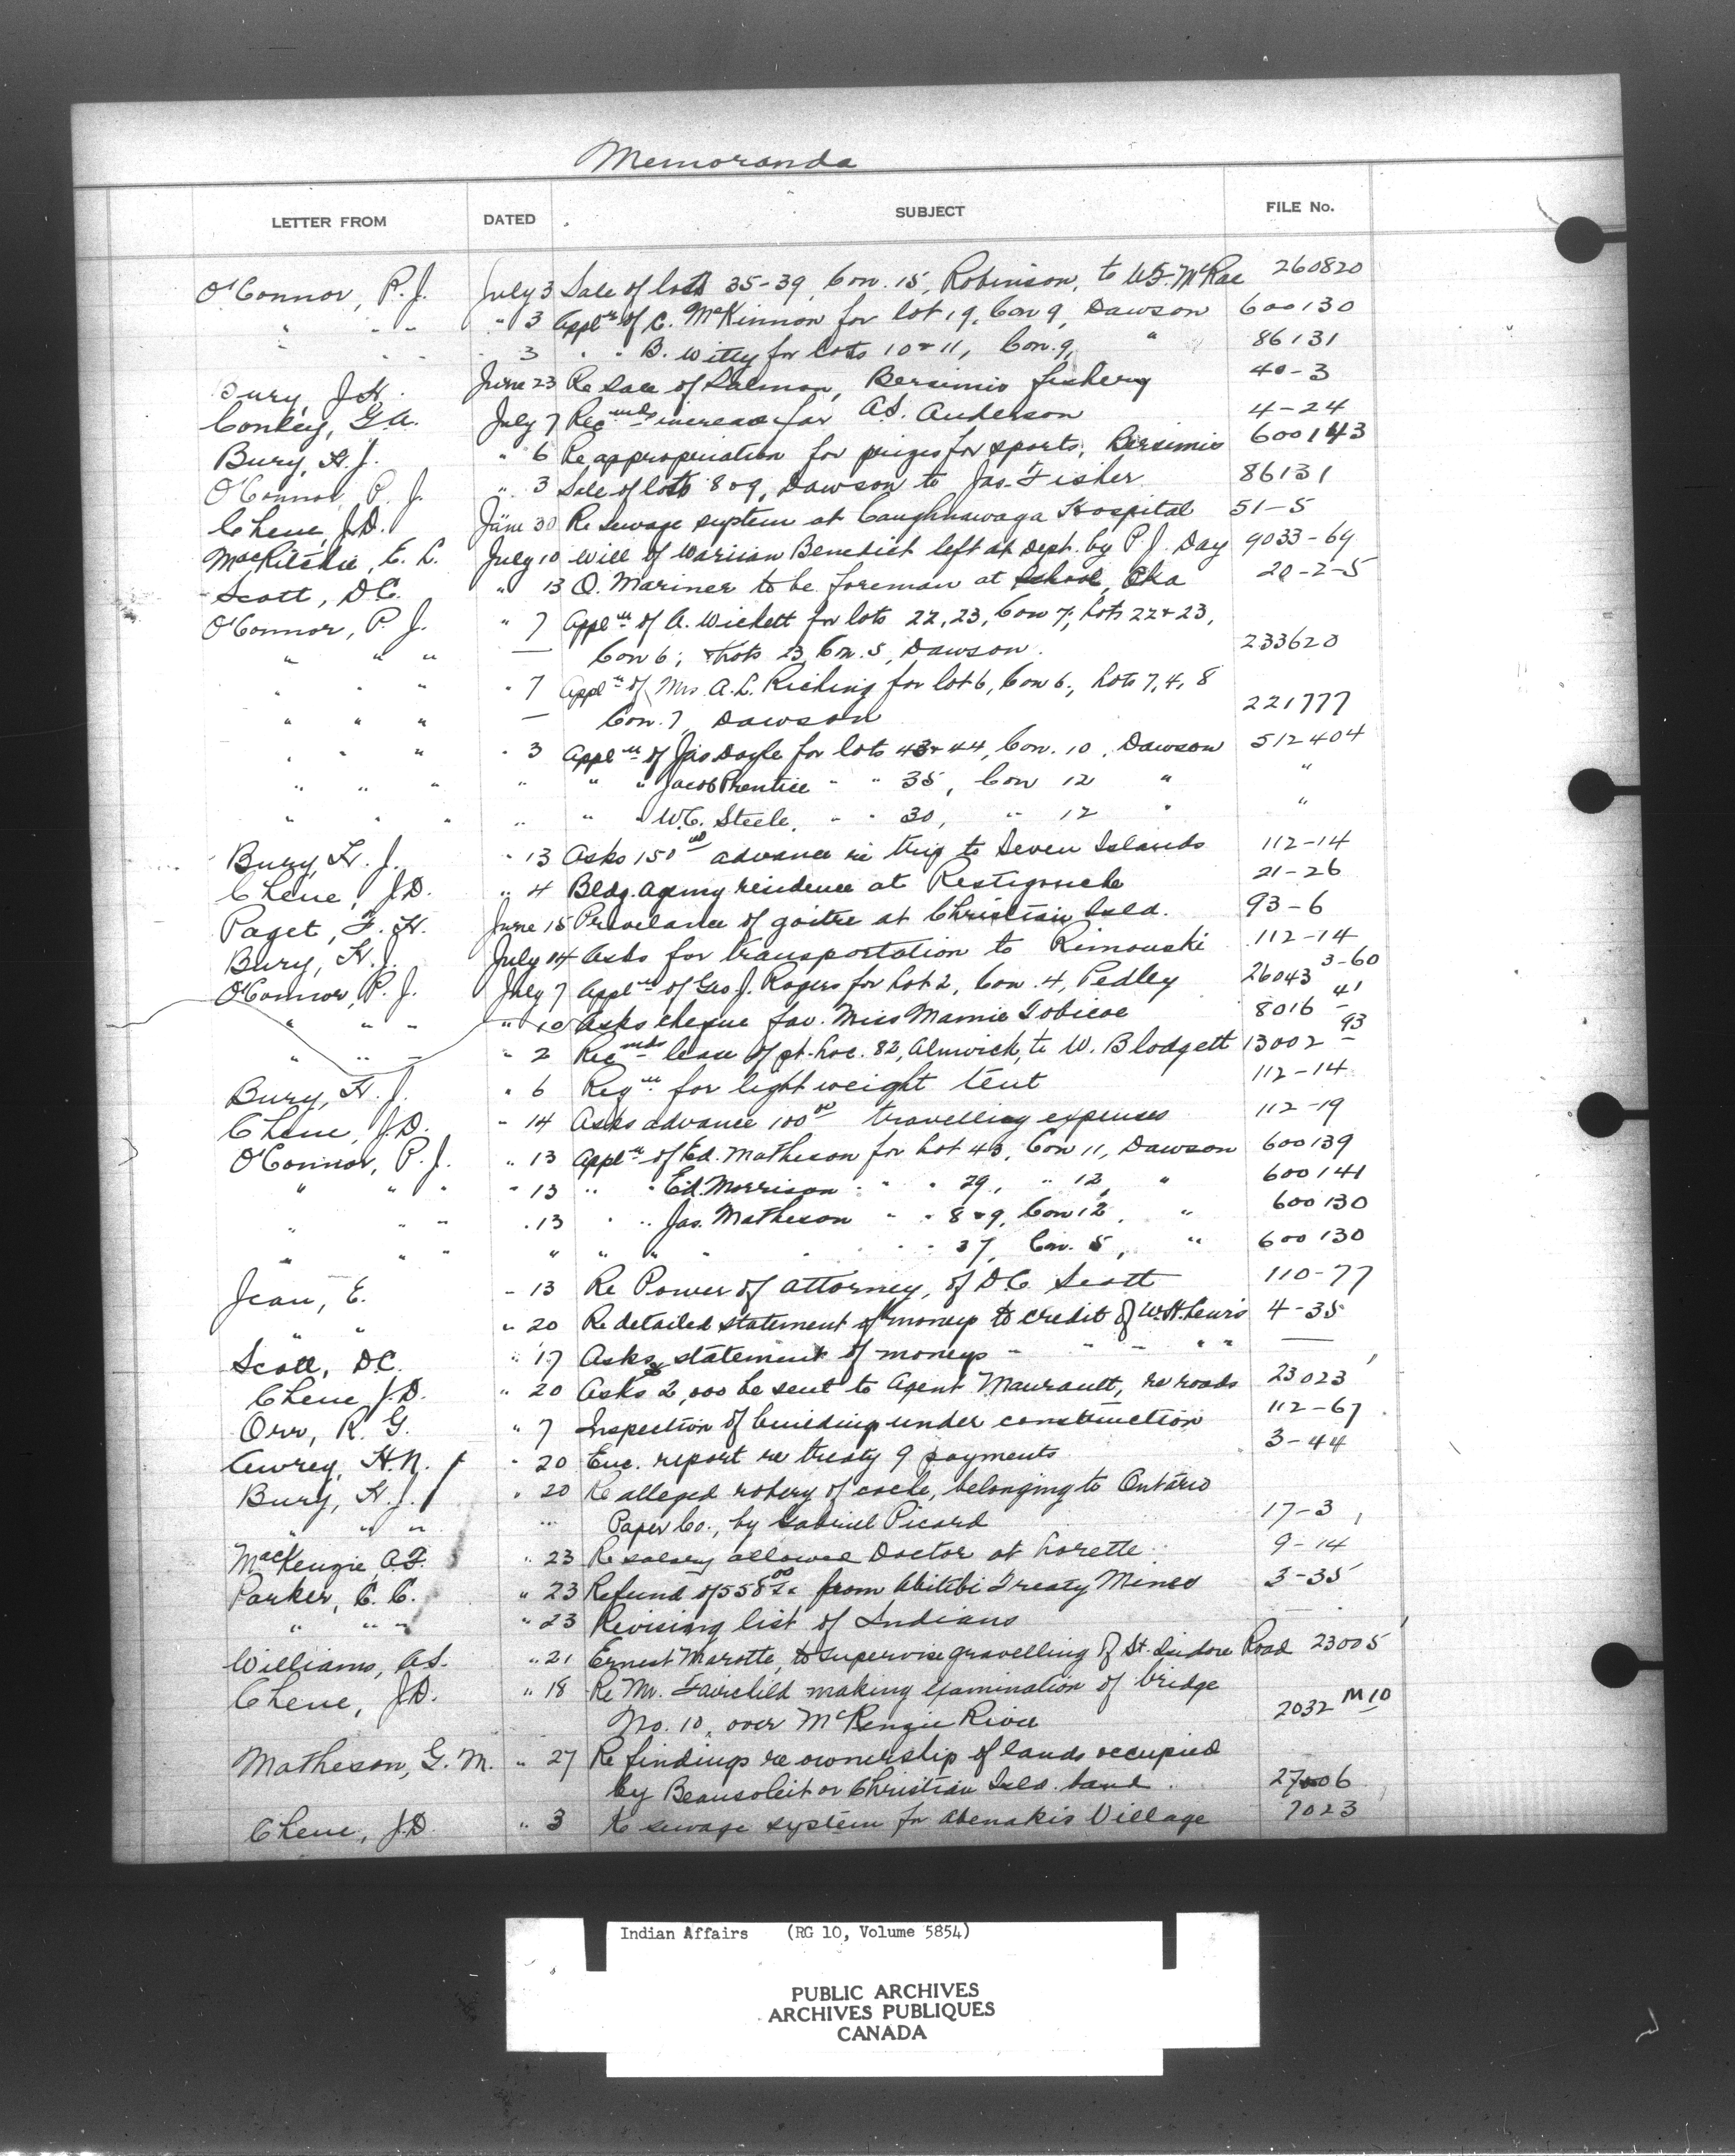 Memoranda
LETTER FROM DATED SUBJECT FILE No.
O'Connor, P. J. July 3 Sale of lots 35-39, Con. 15, Robinson, to W.F. McRae 260820
" " " " 3 Appln of C. McKinnon for lot 19, Con 9, Dawson 600130
" " " " 3 " " B. Witty for lots 10 & 11, Con. 9, " 86131
Bury, J.H. June 23 Re Sale of Salmon, Bersimis fishery 40-3
Conley, G.A. July 7 Recmds increase for A.S. Anderson 4-24
Bury, H. J. " 6 Re appropriation for prizes for sports, Bersimis 600143
O'Connor, P. J. " 3 Sale of lots 8 & 9, Dawson to Jas. Fisher 86131
Chene, J.D. June 30 Re sewage system at Caughnawaga Hospital 51-5
MacRitchie, E. L. July 10 Will of Benedict left at Dept. by P. J. Day 9033-69
Scott, D.C. " 13 O. Mariner to be foreman at School, Oka 20-2-5
O'Connor, P. J. " 7 Appln of A. Wickett for lots 22, 23, Con 7; Lots 22 & 23,
" " " — Con 6; & Lots 23, Con. 5, Dawson. 233620
" " " " 7 Appln of Mrs. A.L. Riching for lot 6, Con 6., Lots 7, 4, 8
" " " — Con. 7, Dawson 221777
" " " " 3 Appln of Jas Doyle for lots 43 & 44, Con. 10, Dawson 512404
" " " " " " Jacob Prentice " " 35, Con 12 " "
" " " " " " W.C. Steele, " " 30, " 12 " "
Bury, H. J. " 13 Asks 150 00 advance re trip to Seven Islands 112-14
Chene, J.D. " 4 Bldg. agency residence at Restigouche 21-26
Paget, F. H. June 15 Prevelance of goitre at Christian Isld. 93-6
Bury, H. J. July 14 Asks for transportation to Rimouski 112-14
O'Connor, P. J. July 7 Appln of Geo J. Rogers for Lot 2, Con. 4, Pedley 26043 3-60
" " " " 10 Asks cheque fav. Miss Mamie Tobicoe 8016 - 41
" " " " 2 Recmds lease of pt. Loc. 82, Alnwick, to W. Blodgett 13002 - 93
Bury, H. J. " 6 Reqn for light weight tent 112-14
Chene, J.D. " 14 Asks advance 100 00 travelling expenses 112-19
O'Connor, P. J. " 13 Appln of Ed. Matheson for Lot 43, Con 11, Dawson 600139
" " " " 13 " " Ed. Morrison " " " 29, " 12, " 600141
" " " " 13 " " Jas. Matheson " " 8 & 9, Con 12, " 600130
" " " " " " " " " 37, Con. 5, " 600130
Jean, E. " 13 Re Power of attorney, of D.C. Scott 110-77
" " " 20 Re detailed statement of moneys to credit of W.H. Lewis 4-35
Scott, D.C. " 17 Asks statement of moneys " " " " " —
Chene J.D. " 20 Asks 2,000 be sent to Agent Maurault, re roads 23023
Orr, R. G. " 7 Inspection of building under construction 112-67
Awrey, H.N. " 20 Enc. report re treaty 9 payments 3-44
Bury, H. J. " 20 Re alleged robery of cache, belonging to Ontario
" " " " Paper Co., by Gabriel Picard 17-3
MacKenzie, A.F. " 23 Re salary allowed Doctor at Lorette 9-14
Parker, C. C. " 23 Refund of 558 00 from Abitibi Treaty Mines 3-35
" " " " 23 Revising list of Indians —
Williams, A.S. " 21 Ernest Marotte, to supervise gravelling of St. Isidore Road 23005
Chene, J.D. " 18 Re Mr. Fairchild making examination of bridge
No. 10, over McKenzie River 2032 M10
Matheson, G. M. " 27 Re findings re ownership of lands occupied
by Beausoleil or Christian Isld. band. 27006
Chene, J.D. " 3 Re sewage system for Abenakis Village 7023
Indian Affairs (RG 10, Volume 5854)
PUBLIC ARCHIVES
ARCHIVES PUBLIQUES
CANADA